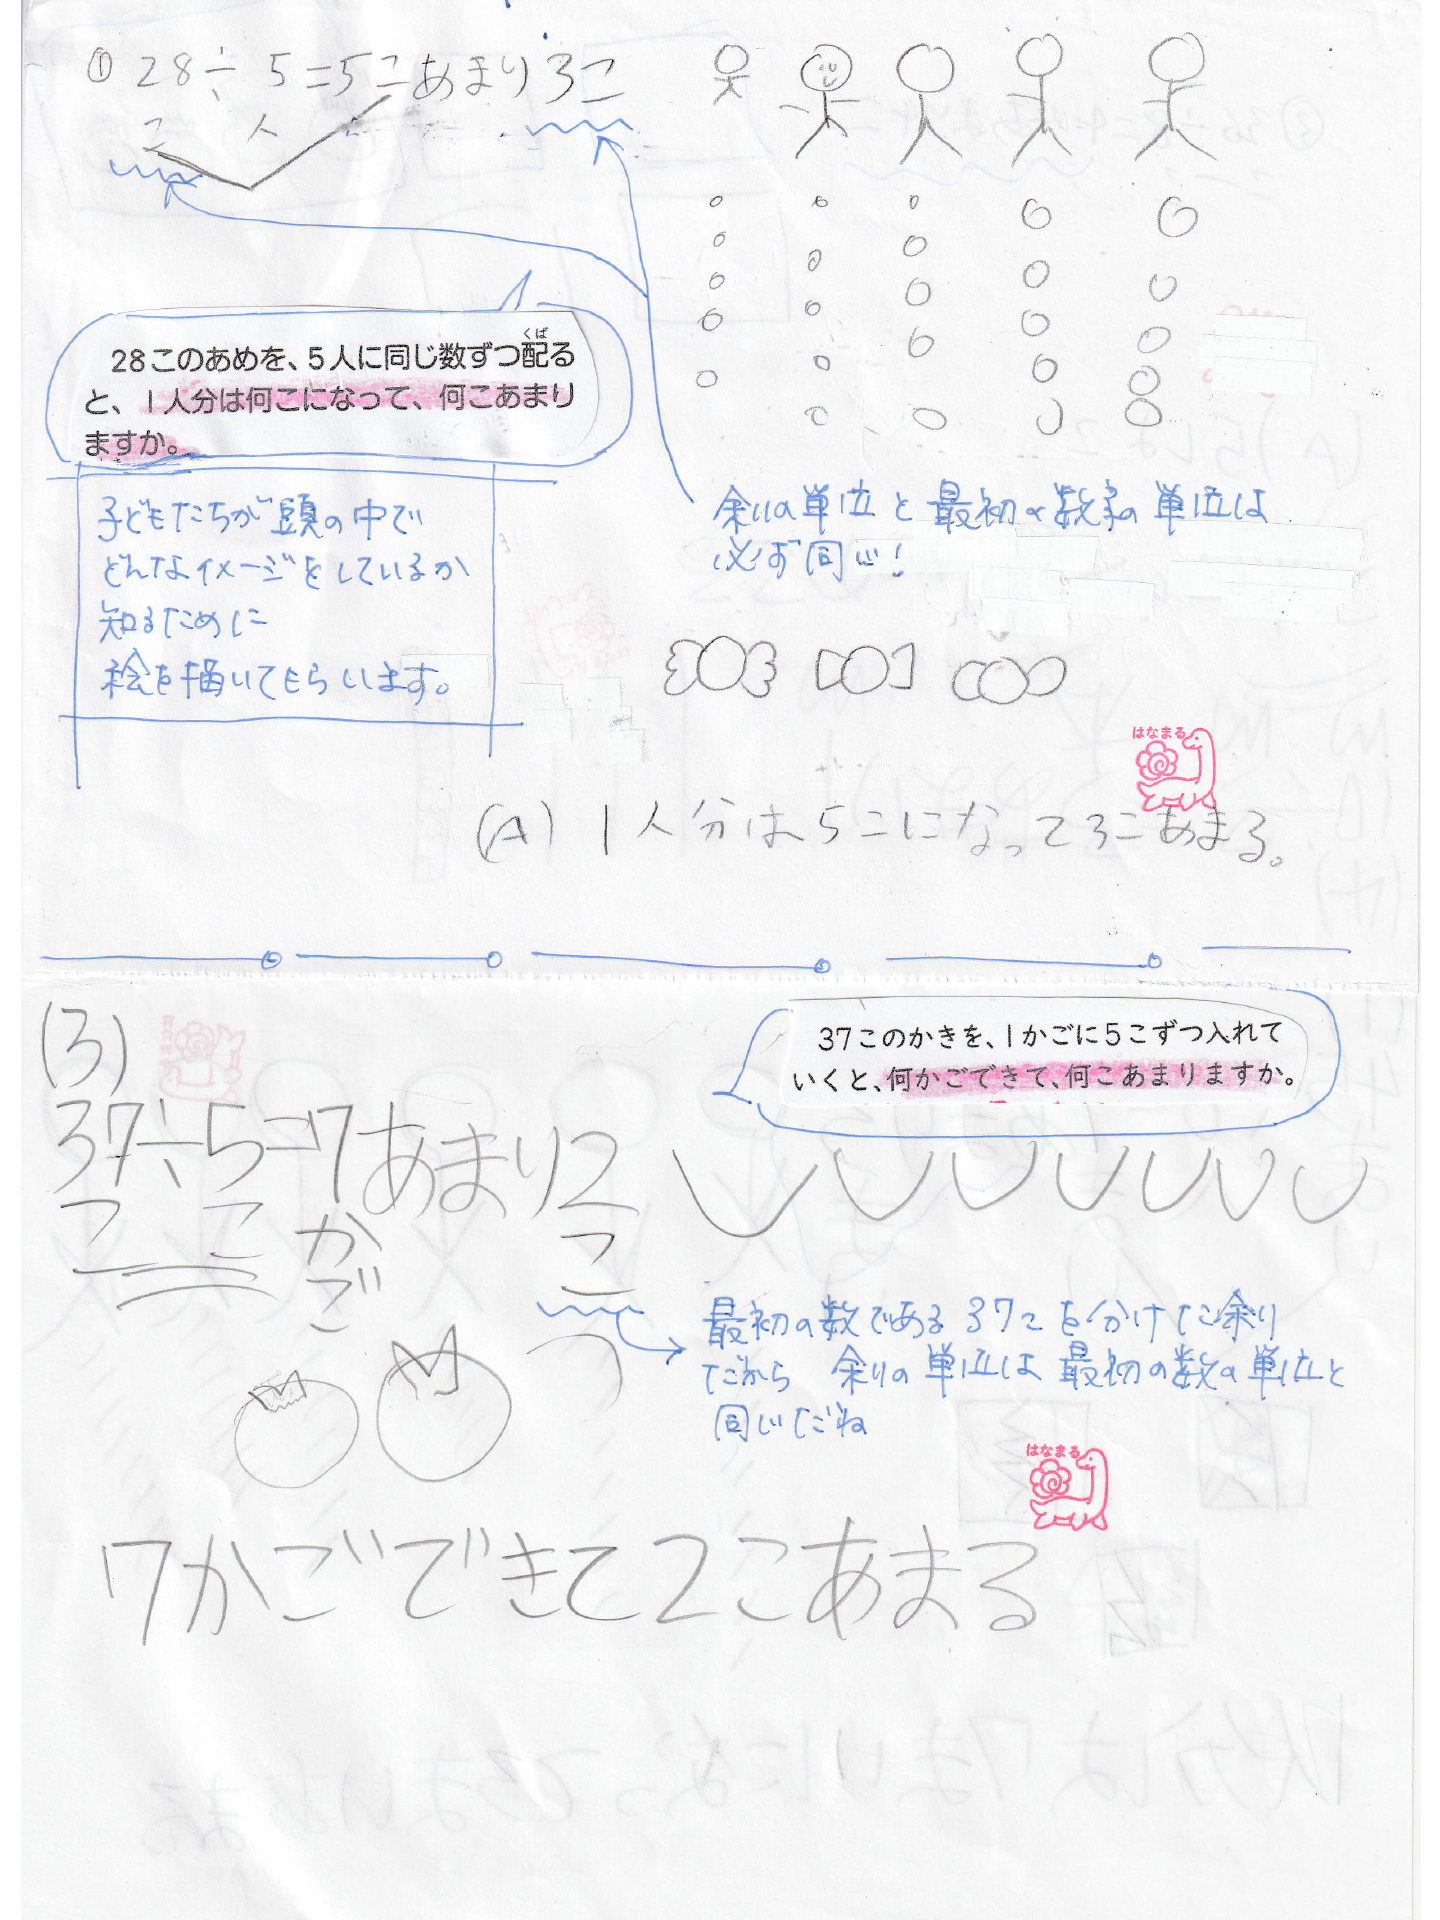 ① 28÷5=5こあまり3こ
こ 人
28このあめを、5人に同じ数ずつ配る
くば
と、1人分は何こになって、何こあまり
ますか。
子どもたちが頭の中で
どんなイメージをしているか
知るために
絵を描いてもらいます。
余りの単位と最初の数字の単位は
必ず同じ!
はなまる
(A) 1人分は5こになって3こあまる。
(3)
37このかきを、1かごに5こずつ入れて
いくと、何かごできて、何こあまりますか。
37÷5=7あまり2
こ こ かご こ
最初の数である37こを分けた余り
だから 余りの単位は最初の数の単位と
同じだね
はなまる
7かごできて2こあまる